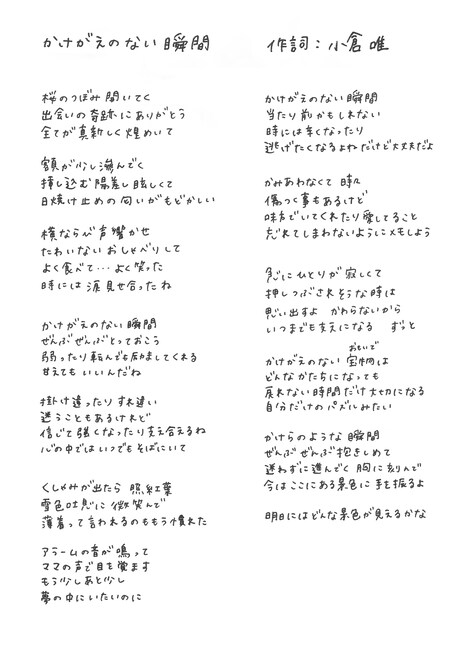 かけがえのない瞬間
作詞：小倉唯
桜のつぼみ開いてく
出会いの奇跡にありがとう
全てが真新しく煌めいて
額が少し滲んでく
挿し込む陽差し眩しくて
日焼け止めの匂いがもどかしい
横ならび声響かせ
たわいないおしゃべりして
よく食べて…よく笑った
時には涙見せ合ったね
かけがえのない瞬間
ぜんぶぜんぶとっておこう
弱ったり転んでも励ましてくれる
甘えてもいいんだね
掛け違ったりすれ違い
迷うこともあるけれど
信じて強くなったり支え合えるね
心の中ではいつでもそばにいて
くしゃみが出たら 照紅葉
雪色吐息に微笑んで
薄着って言われるのももう慣れた
アラームの音が鳴って
ママの声で目を覚ます
もう少しあと少し
夢の中にいたいのに
かけがえのない瞬間
当たり前かもしれない
時には辛くなったり
逃げたくなるよねだけど大丈夫だよ
かみあわなくて 時々
傷つく事もあるけど
味方でいてくれたり愛してること
忘れてしまわないようにメモしよう
急にひとりが寂しくて
押しつぶされそうな時は
思い出すよ かわらないから
いつまでも支えになる ずっと
おもいで
かけがえのない宝物は
どんなかたちになっても
戻れない時間だけ大切になる
自分だけのパズルみたい
かけらのような瞬間
ぜんぶぜんぶ抱きしめて
迷わずに進んでく 胸に刻んで
今はここにある景色に手を振るよ
明日にはどんな景色が見えるかな